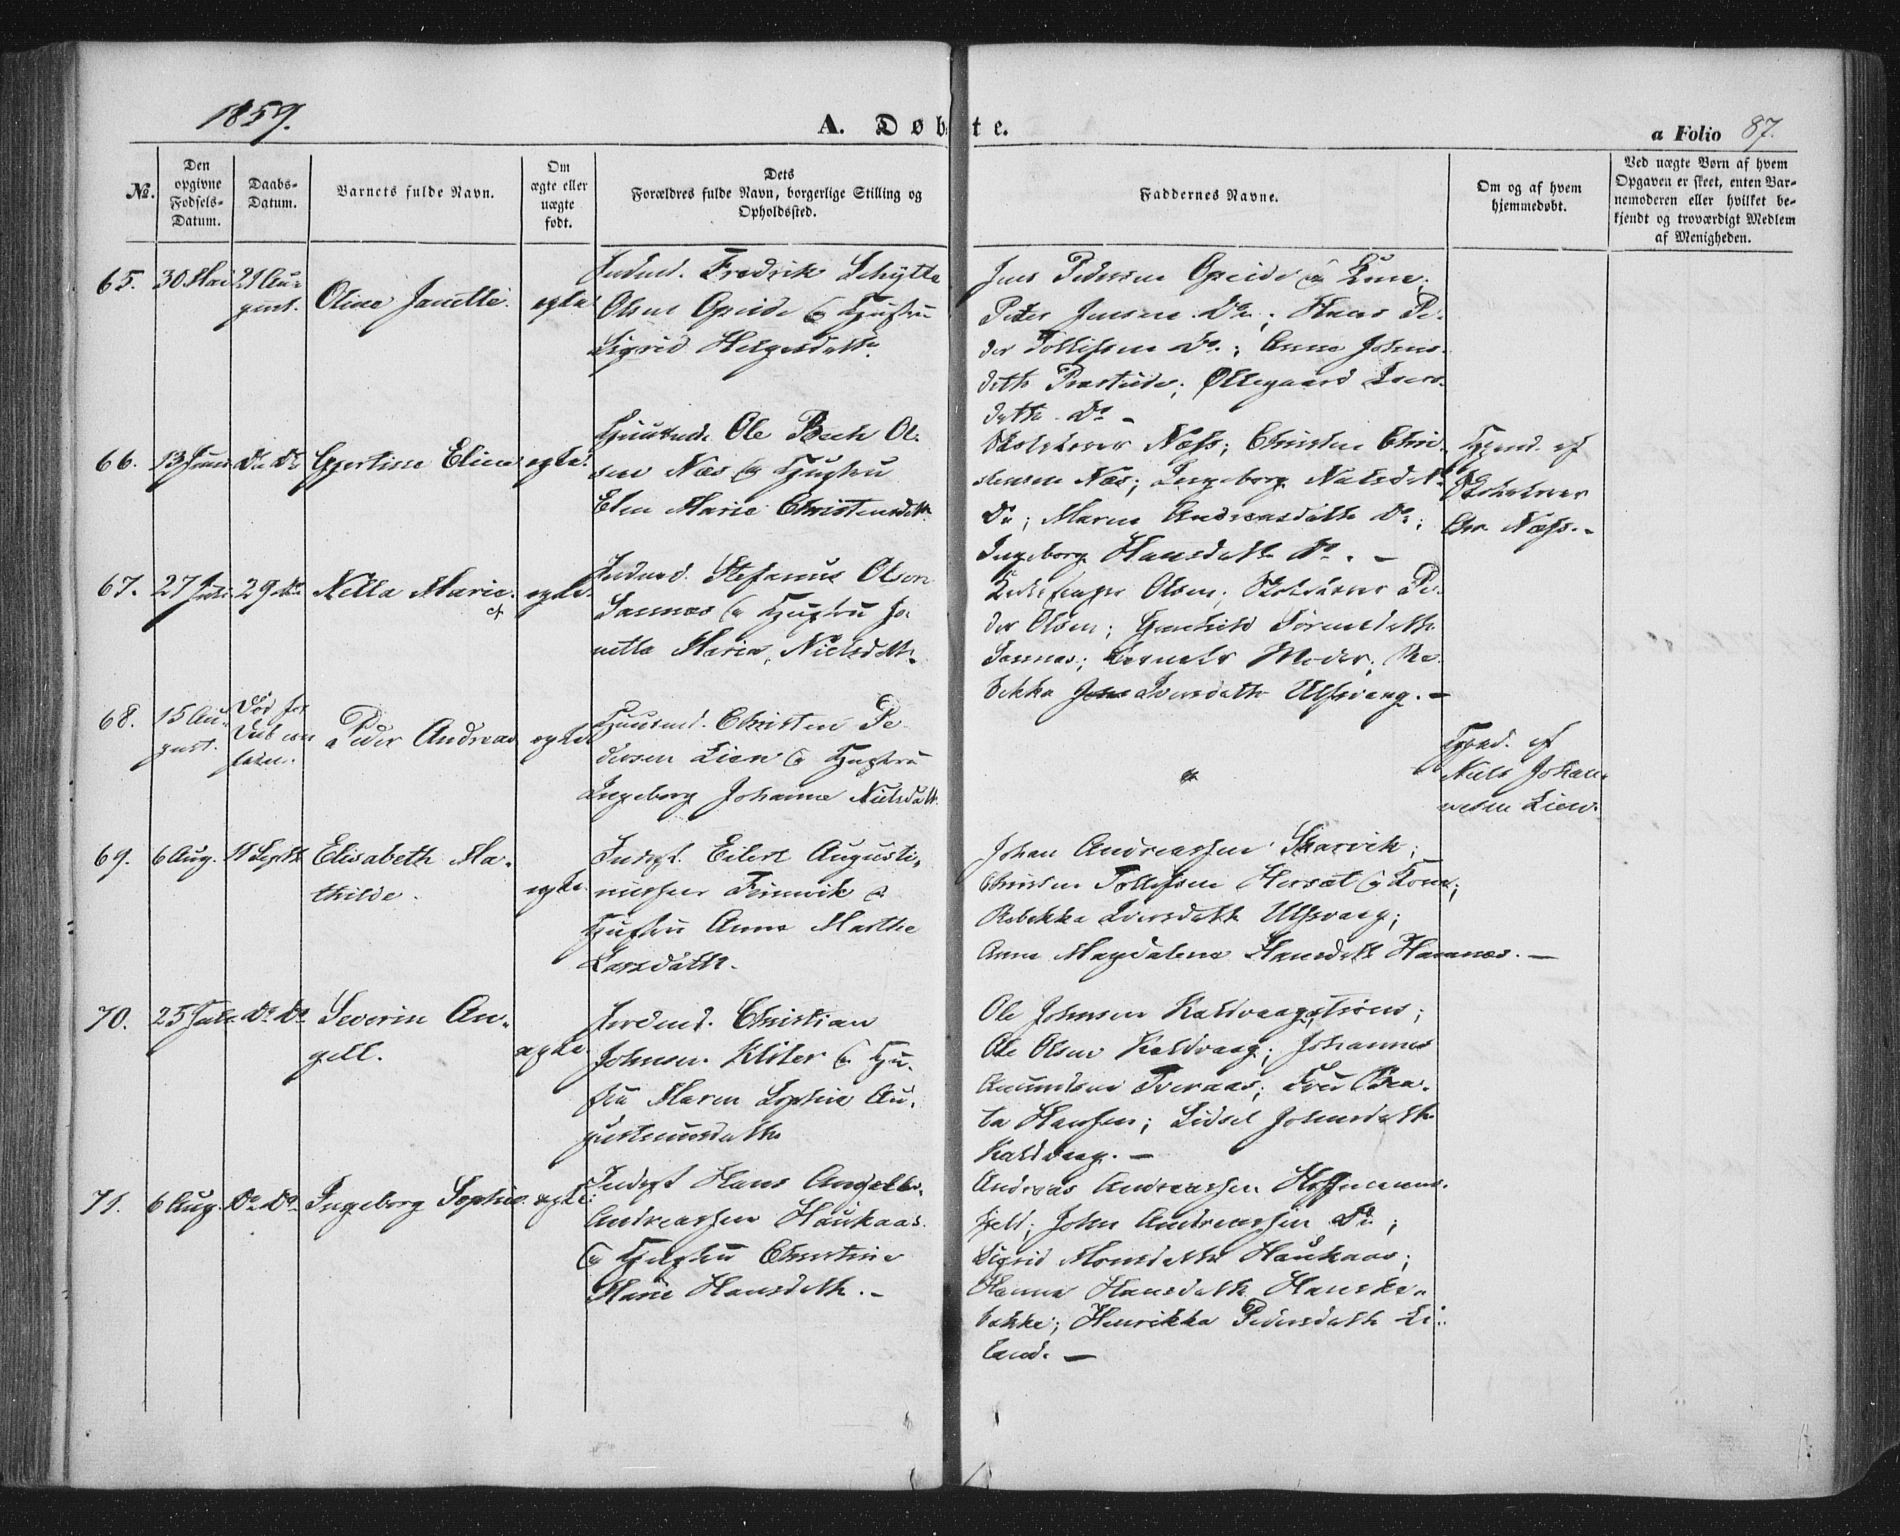 1859.
A. Døbte.
a Folio 87.
No.
Den opgivne Fødsels-Datum.
Daabs-Datum.
Barnets fulde Navn.
Om ægte eller uægte født.
Dets Forældres fulde Navn, borgerlige Stilling og Opholdssted.
Faddernes Navne.
Om og af hvem hjemmedøbt.
Ved uægte Børn af hvem Opgaven er skeet, enten Barnemoderen eller hvilket bekjendt og troværdigt Medlem af Menigheden.
65.
30 Mai
21 Au-
gust.
Oline Janette.
egte.
Fredrik Schytte
Olsen Opeide & Hustru
Sigrid Helgesdatte.
Jens Pedersen Opeide &
Peter Jensen Do.; Hans Pe-
der Tollefsen Do.; Anne Johns-
datte; Ollegaard Ivers-
datte Do –
66.
13 Juni
Do Do
Eline
egte.
Huusmd. Ole Bech Ol-
sen Næs & Hustru
Elen Marie Christensdatte
Skolelærer Næss; Christen Chri-
stensen Næs; Ingeborg Nilsdatte
Do; Maren Andreasdatte Do;
Ingeborg Hansdatte Do. –
Hjemd. af
Skolelærer
Chr. Næss. –
67.
27 Juli
29 Do
Nella Marie
egte.
Indmd. Stefanus Olsen
Sannæs & Hustru Ja-
netta Maria Nielsdatte.
Kirkesanger Olsen; Skolelærer Pe-
der Olsen; Sørensdatte
Sannæs; Barnets Moder; Re-
bekka Iversdatte Ulfsvaag. –
68.
15 Au-
gust.
Død før
Daaben
Peder Andreas
egte
Huusmd. Christen Pe-
dersen Lien & Hustru
Ingeborg Johanna Nielsdatte.
Hjemd. af
Niels Johan-
nesen Lien.
69.
6 Aug.
11 Septbr
Elisabeth Ma-
thilde.
egte.
Indrst. Eilert Augusti-
nussen Finnvik &
Hustru Anna Marthe
Larsdatte.
Johan Andreassen Skarvik;
Christen Tollefsen Hersæt & Kone;
Rebekka Iversdatte Ulfsvaag;
Anne Magdalena Hansdatte Hamnæs. –
70.
25 Juli
Do Do
Severin An-
gell.
egte.
Christian
Johnsen Kliter & Hu-
stru Maren Sophie Au-
gustinusdatte
Ole Johnsen Kaldvaagstrøm;
Ole Olsen Kaldvaag; Johannes
Amundsen Tveraas; Fru Bea-
ta Hanssen; Sidsel Johnsdatte
Kaldvaag. –
71.
6 Aug.
Do Do
Ingeborg Sophie.
egte.
Indrst Hans Angell
Andreassen Haukaas
& Hustru Christine
Marie Hansdatte. –
Andreas Andreassen Hoffmanns-
feld; John Andreassen Do;
Sigrid Monsdatte Haukaas;
Hanna Hansdatte Hanske-
bakke; Henrikka Pedersdatte Li-
land. –